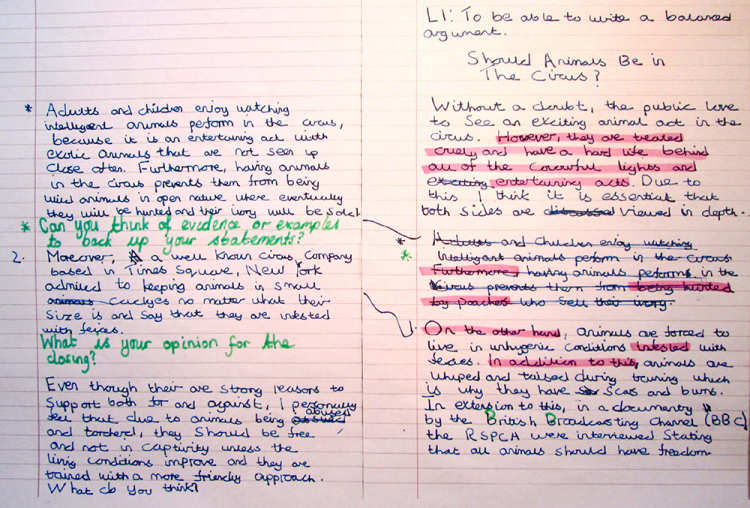 * Adults and children enjoy watching
intelligent animals perform in the circus,
because it is an entertaining act with
exotic animals that are not seen up
close often. Furthermore, having animals
in the circus prevents them from being
wild animals in open nature where eventually
they will be hunted and their ivory will be sold.
* Can you think of evidence or examples
to back up your statements?
2. Moreover, A a well known circus, company
based in Times Square, New York
admited to keeping animals in small
animals cages no matter what their
size is and say that they are infested
with feices.
What is your opinion for the
closing?
Even though their are strong reasons to
support both for and against, I personally
feel that due to animals being abused
and tortered, they should be free
and not in captivity unless the
living conditions improve and they are
trained with a more friendly approach.
What do you think?
LI: To be able to write a balanced
argument.
Should Animals Be in
The Circus?
Without a doubt, the public love
to see an exciting animal act in the
circus. However, they are treated
cruely and have a hard life behind
all of the colourful lights and
exciting entertaining acts. Due to
this I think it is essential that
both sides are discussed viewed in depth.
* Adults and children enjoy watching
* intelligent animals perform in the circus
Furthermore, having animals perform in the
circus prevents them from being hunted
by poachers who sell their ivory.
On the other hand, animals are forced to
live in unhygenic conditions infested with
feices. In addition to this, animals are
whiped and taised during training which
is why they have scars and burns.
In extension to this, in a documentry
by the British Broadcasting Channel (BBC)
the RSPCA were interviewed stating
that all animals should have freedom.